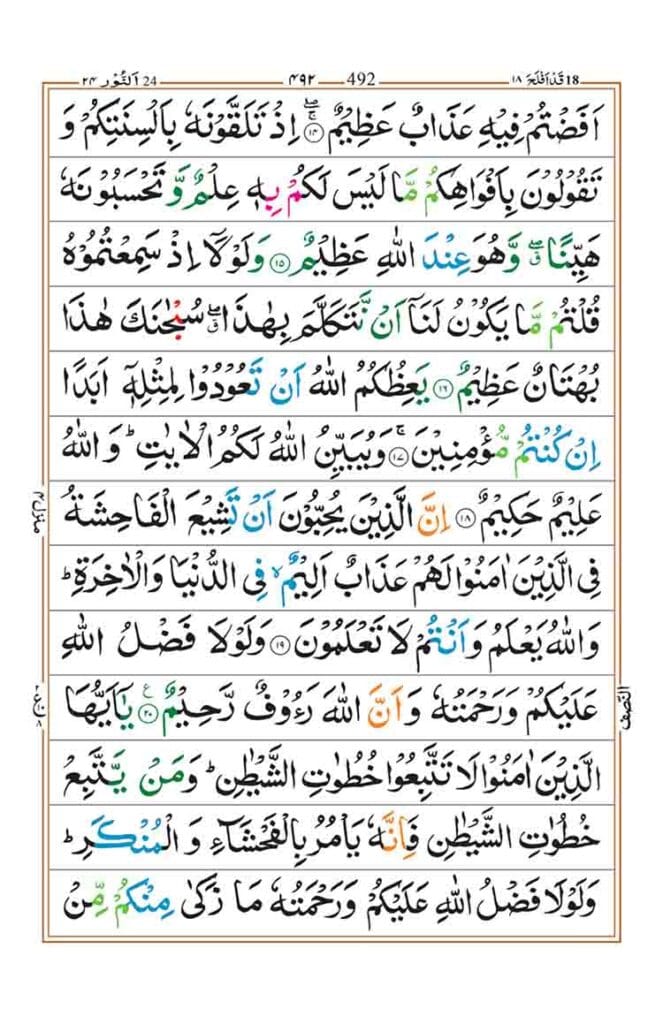 18 قَدْ اَفْلَحَ ١٨ 492 ۴۹۲ 24 اَلنُّوْر ۲۴
اَفَضْتُمْ فِيْهِ عَذَابٌ عَظِيْمٌ ۚۖ ۝۱۴ اِذْ تَلَقَّوْنَهٗ بِاَلْسِنَتِكُمْ وَ
تَقُوْلُوْنَ بِاَفْوَاهِكُمْ مَّا لَيْسَ لَكُمْ بِهٖ عِلْمٌ وَّ تَحْسَبُوْنَهٗ
هَيِّنًا ۖۗ وَّ هُوَ عِنْدَ اللّٰهِ عَظِيْمٌ ۝۱۵ وَ لَوْلَاۤ اِذْ سَمِعْتُمُوْهُ
قُلْتُمْ مَّا يَكُوْنُ لَنَاۤ اَنْ نَّتَكَلَّمَ بِهٰذَا ۖۗ سُبْحٰنَكَ هٰذَا
بُهْتَانٌ عَظِيْمٌ ۝۱۶ يَعِظُكُمُ اللّٰهُ اَنْ تَعُوْدُوْا لِمِثْلِهٖۤ اَبَدًا
اِنْ كُنْتُمْ مُّؤْمِنِيْنَ ۚ ۝۱۷ وَ يُبَيِّنُ اللّٰهُ لَكُمُ الْاٰيٰتِ ؕ وَ اللّٰهُ
عَلِيْمٌ حَكِيْمٌ ۝۱۸ اِنَّ الَّذِيْنَ يُحِبُّوْنَ اَنْ تَشِيْعَ الْفَاحِشَةُ
منزل ۴
فِي الَّذِيْنَ اٰمَنُوْا لَهُمْ عَذَابٌ اَلِيْمٌ ۙ فِي الدُّنْيَا وَ الْاٰخِرَةِ ؕ
وَ اللّٰهُ يَعْلَمُ وَ اَنْتُمْ لَا تَعْلَمُوْنَ ۝۱۹ وَ لَوْلَا فَضْلُ اللّٰهِ
عَلَيْكُمْ وَ رَحْمَتُهٗ وَ اَنَّ اللّٰهَ رَءُوْفٌ رَّحِيْمٌ ۠ ۝۲۰ يٰۤاَيُّهَا
النِّصْف
الَّذِيْنَ اٰمَنُوْا لَا تَتَّبِعُوْا خُطُوٰتِ الشَّيْطٰنِ ؕ وَ مَنْ يَّتَّبِعْ
خُطُوٰتِ الشَّيْطٰنِ فَاِنَّهٗ يَاْمُرُ بِالْفَحْشَآءِ وَ الْمُنْكَرِ ؕ
وَ لَوْلَا فَضْلُ اللّٰهِ عَلَيْكُمْ وَ رَحْمَتُهٗ مَا زَكٰى مِنْكُمْ مِّنْ